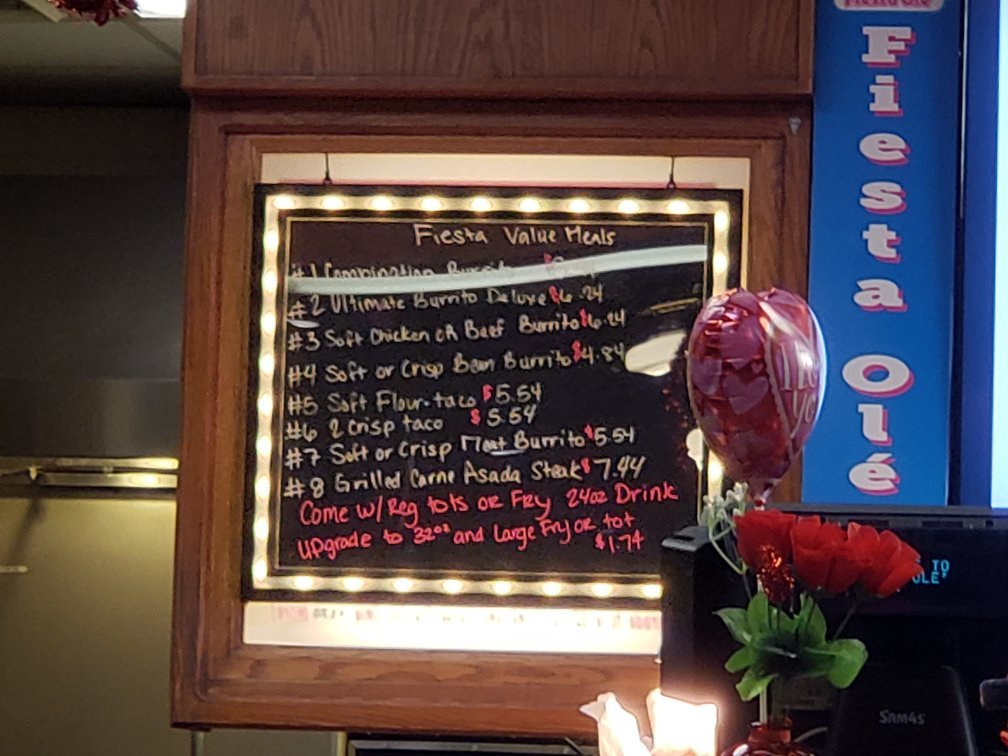 Fiesta Value Meals
#1 Combination Burrito
#2 Ultimate Burrito Deluxe $6.24
#3 Soft Chicken or Beef Burrito $6.24
#4 Soft or Crisp Bean Burrito $4.84
#5 Soft Flour taco $5.54
#6 2 Crisp taco $5.54
#7 Soft or Crisp Meat Burrito $5.54
#8 Grilled Carne Asada Steak $7.44
Come w/ Reg tots or Fry 24oz Drink
Upgrade to 32oz and Large Fry or tot
$1.74
Fiesta Olé
I Love
TO
SAM4s